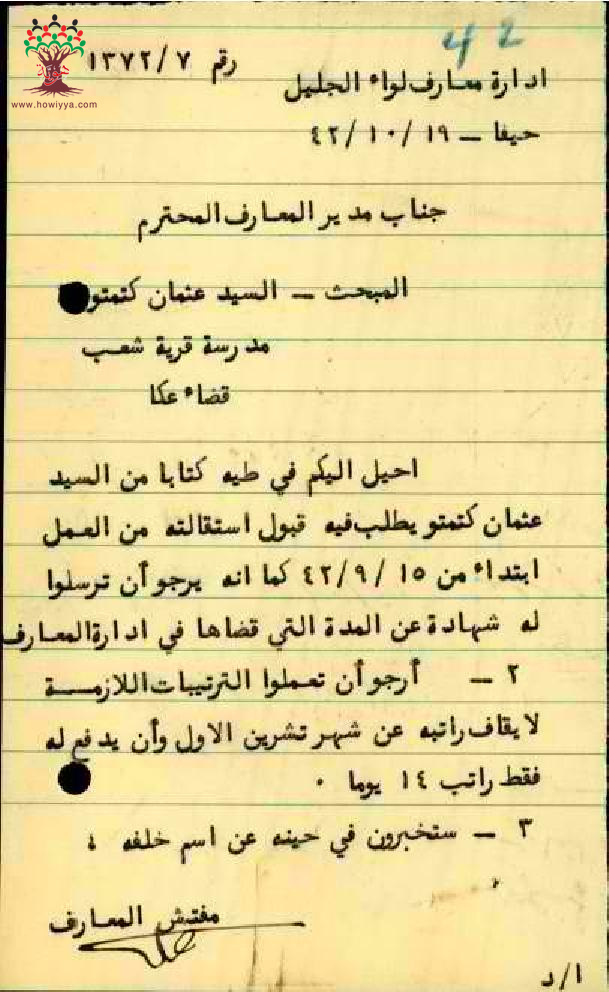 42
رقم ١٣٧٢/٧
www.howiyya.com
ادارة معارف لواء الجليل
حيفا – ٤٢/١٠/١٩
جناب مدير المعارف المحترم
المبحث – السيد عثمان كتمتو
مدرسة قرية شعب
قضاء عكا
احيل اليكم في طيه كتابا من السيد
عثمان كتمتو يطلب فيه قبول استقالته من العمل
ابتداء من ٤٢/٩/١٥ كما انه يرجو أن ترسلوا
له شهادة عن المدة التي قضاها في ادارة المعارف
٢ – أرجو أن تعملوا الترتيبات اللازمــة
لايقاف راتبه عن شهر تشرين الاول وأن يدفع له
فقط راتب ١٤ يوما ٠
٣ – ستخبرون في حينه عن اسم خلفه
مفتش المعارف
ا/د